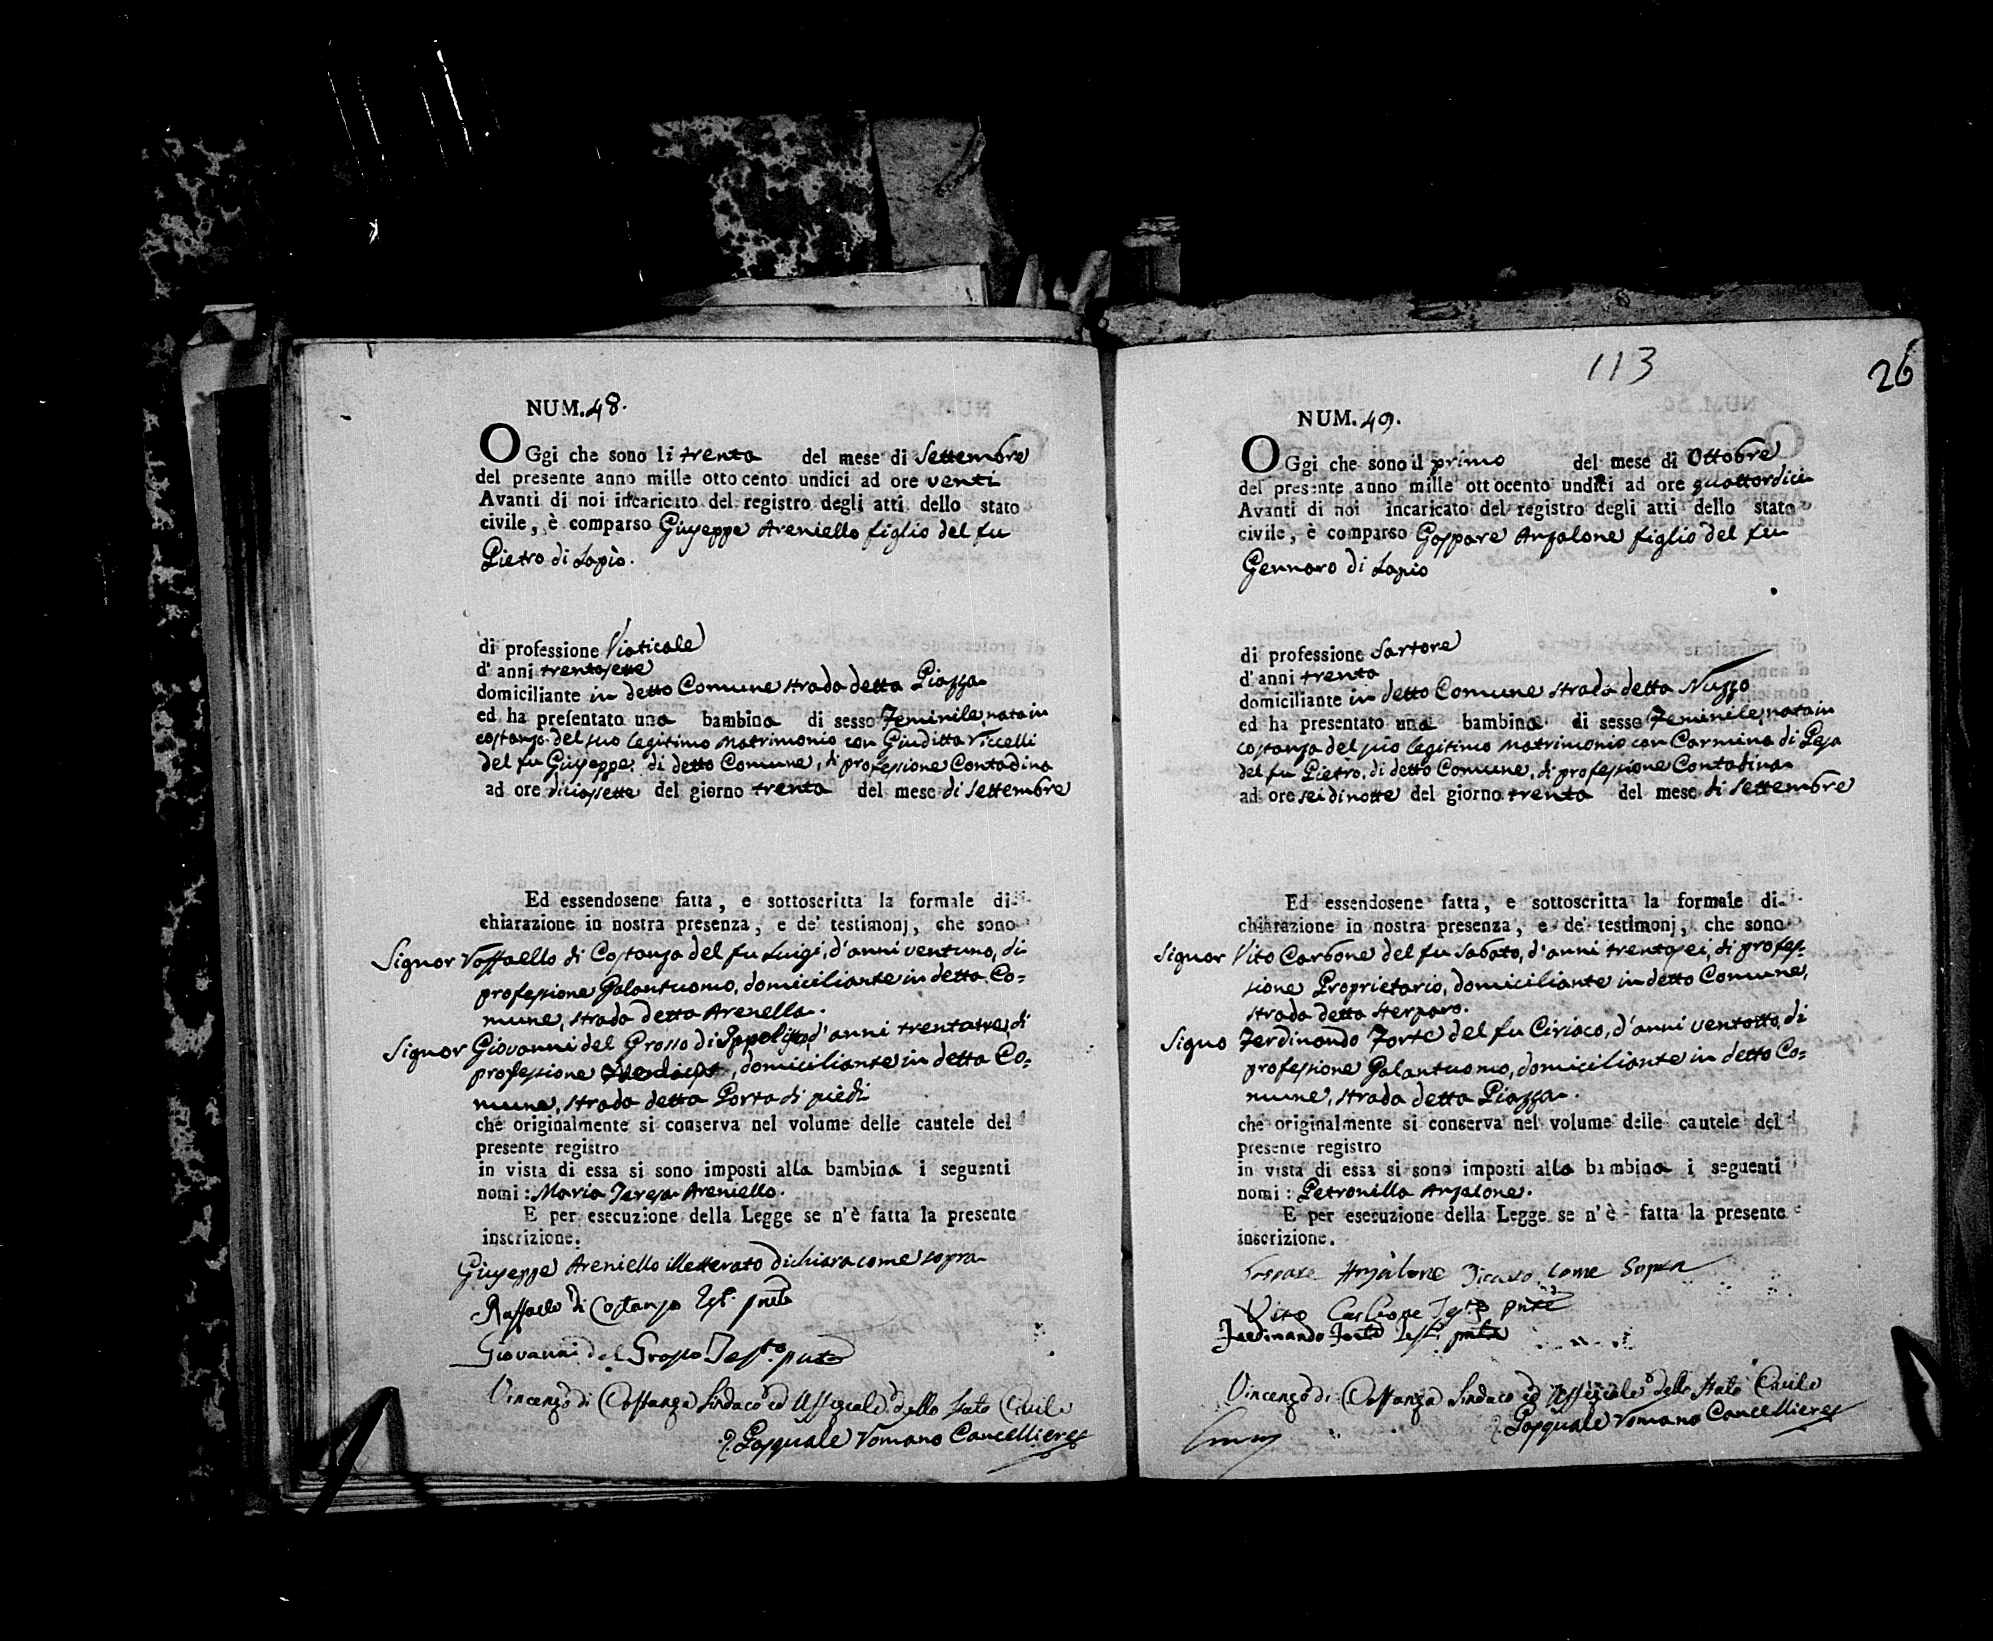 NUM. 48.
OGgi che sono li trenta del mese di Settembre
del presente anno mille otto cento undici ad ore venti
Avanti di noi incaricato del registro degli atti dello stato
civile, è comparso Giuseppe Areniello figlio del fu
Pietro di Lapio.
di professione Viaticale
d' anni trentasette
domiciliante in detto Comune strada detta Piazza
ed ha presentato una bambina di sesso Feminile, nata in
costanza del suo legitimo matrimonio con Giuditta
del fu Giuseppe di detto Comune, di professione Contadina
ad ore diciassette del giorno trenta del mese di Settembre
Ed essendosene fatta, e sottoscritta la formale di-
chiarazione in nostra presenza, e de' testimonj, che sono
Signor Raffaello di Costanza del fu Luigi, d'anni ventuno, di
professione Galantuomo, domiciliante in detto Co=
mune, strada detta Arenella.
Signor Giovanni del Grosso di Ippolito, d'anni trentatre, di
professione , domiciliante in detto Co=
mune, strada detta Porta di piedi
che originalmente si conserva nel volume delle cautele del
presente registro
in vista di essa si sono imposti alla bambina i seguenti
nomi: Maria Teresa Areniello.
E per esecuzione della Legge se n'è fatta la presente
inscrizione.
Giuseppe Areniello illetterato dichiara come sopra
Raffaele di Costanzo Test. pnte
Giovanni del Grosso Testo. pnte
Vincenzo di Costanza Sindaco ed Uffiziale dello Stato Civile
Pasquale Romano Cancelliere
113
26
NUM. 49.
OGgi che sono il primo del mese di Ottobre
del presente anno mille ottocento undici ad ore quattordici
Avanti di noi incaricato del registro degli atti dello stato
civile, è comparso Gaspare Anzalone figlio del fu
Gennaro di Lapio
di professione Sartore
d' anni trenta
domiciliante in detto Comune strada detta Nuzzo
ed ha presentato una bambina di sesso Feminile, nata in
costanza del suo legitimo matrimonio con Carmina di Pesa
del fu Pietro, di detto Comune, di professione Contadina
ad ore sei di notte del giorno trenta del mese di Settembre
Ed essendosene fatta, e sottoscritta la formale di-
chiarazione in nostra presenza, e de' testimonj, che sono
Signor Vito Carbone del fu Sabato, d'anni trentasei, di profes=
sione Proprietario, domiciliante in detto Comune,
strada detta Sterparo.
Signo Ferdinando Forte del fu Ciriaco, d'anni ventotto, di
professione Galantuomo, domiciliante in detto Co=
mune, strada detta Piazza.
che originalmente si conserva nel volume delle cautele del
presente registro
in vista di essa si sono imposti alla bambina i seguenti
nomi: Petronilla Anzalone.
E per esecuzione della Legge se n'è fatta la presente
inscrizione.
Gaspare Anzalone Dicaro come Sopra
Vito Carbone Testo pnte
Ferdinando Forte Test. pnte
Vincenzo di Costanza Sindaco ed Uffiziale dello Stato Civile
Pasquale Romano Cancelliere